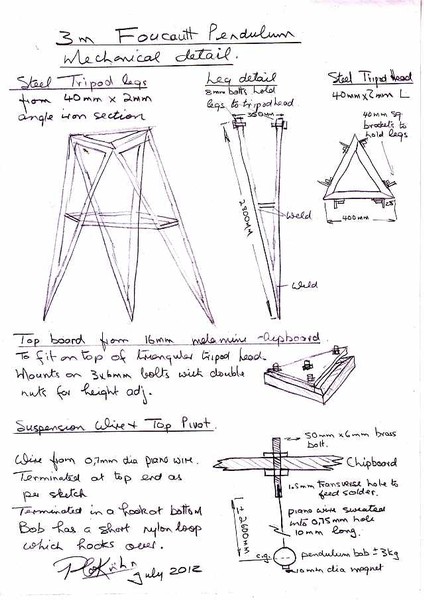 3m Foucault Pendulum
Mechanical detail.
Steel Tripod legs
from 40mm x 2mm
angle iron section
Leg detail
8mm bolts hold
legs to tripod head
350mm
2800mm
Weld
Weld
Steel Tripod Head
40mm x 2mm L
40mm sq
brackets to
hold legs
400mm
Top board from 16mm melamine chipboard
To fit on top of triangular tripod head.
Mounts on 3x6mm bolts with double
nuts for height adj.
Suspension Wire & Top Pivot.
Wire from 0,7mm dia piano wire.
Terminated at top end as
per sketch
Terminated in a hook at bottom
Bob has a short nylon loop
which hooks over.
July 2012
50mm x 6mm brass
bolt.
Chipboard
1.5mm transverse hole to
feed solder.
piano wire sweated
into 0,75mm hole
10mm long.
c.g.
pendulum bob ± 3kg
10mm dia magnet